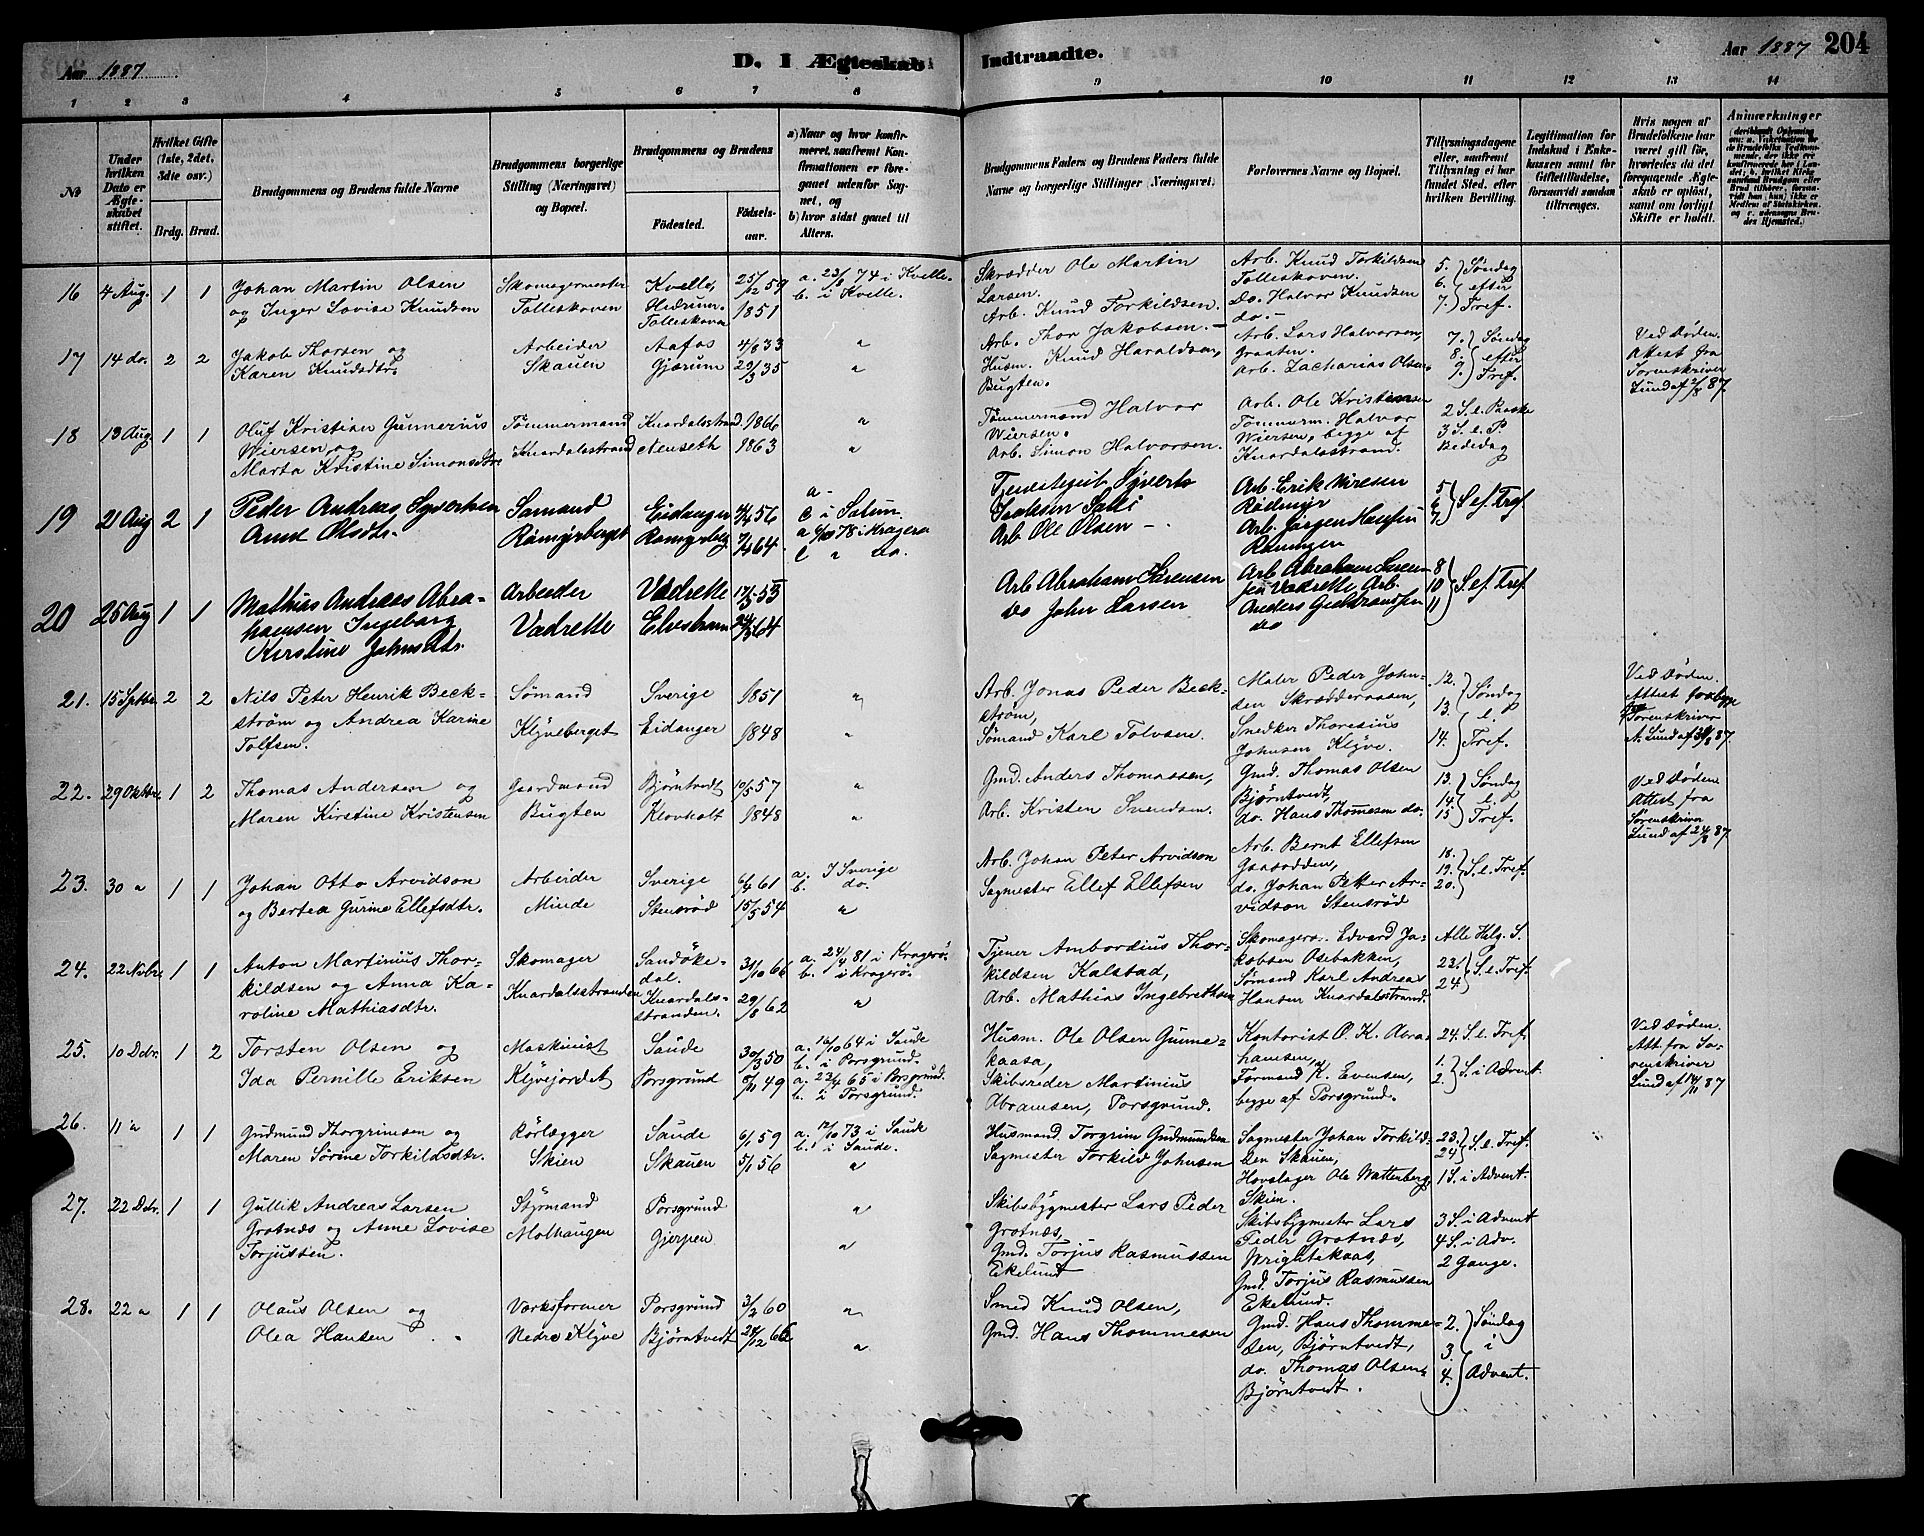 Aar 1887. D. I Ægteskab Indtraadte. Aar 1887 204
1 2 3 4 5 6 7 8 9 10 11 12 13 14
No
Under hvilken Dato er Ægteskabet stiftet.
Hvilket Gifte (1ste, 2det, 3die osv.)
Brdg. Brud.
Brudgommens og Brudens fulde Navne
Brudgommens borgerlige Stilling (Næringsvei) og Bopæl.
Brudgommens og Brudens
Fødested. Fødselsaar.
a) Naar og hvor konfirmeret, saafremt Konfirmationen er foregaaet udenfor Sognet, og
b) hvor sidst gaaet til Alters.
Brudgommens Faders og Brudens Faders fulde Navne og borgerlige Stillinger (Næringsvei).
Forlovernes Navne og Bopæl.
Tillysningsdagene eller, saafremt Tillysning ei har fundet Sted, efter hvilken Bevilling.
Legitimation for Indskud i Enkekassen samt for Giftetilladelse, forsaavidt saadan tiltrænges.
Hvis nogen af Brudefolkene har været gift før, hvorledes da det foregaaende Ægteskab er opløst, samt om lovligt Skifte er holdt.
Anmærkninger
16 4 Aug. 1 1 Johan Martin Olsen Skomagermester Kvelle, 25/12 59 a. 23/8 74 i Kvelle.
og Inger Lovise Knudsen Tolleskoven Hedrum. b. i Kvelle.
Tolleskoven 1851
Skrædder Ole Martin Larsen. Arb. Knud Torkildsen Tolleskoven. 5. 6. 7. Søndag efter Tref.
Arb. Knud Torkildsen. Do. Halvor Knudsen do. -
17 14 do. 2 2 Jakob Thorsen og Arbeider Aafos 4/8 33 "
Karen Knudsdtr. Skauen Gjerum 29/3 35 "
Arb. Thor Jakobsen. - Arb. Lars Halvorsen, Graaten. 7. 8. 9. Søndag efter Tref.
Husm. Knud Haraldsen, Bugten. Arb. Zacharias Olsen.
Ved Døden. Attest fra Sorenskriver Lund af 2/8 87.
18 13 Aug 1 1 Oluf Kristian Gunnerius Tømmermand Knardalsstrand. 1866 "
Wiersen og Knardalsstrand Nenseth 1863 "
Marta Kristine Simonsdtr
Tømmermand Halvor Wiersen. Arb. Ole Kristensen 2 S. e. Paaske
Arb. Simon Halvorsen. Tømmerm. Halvor Wiersen, begge af Knardalsstrand. 3 S. e. P. Bededag
19 21 Aug 2 1 Peder Andreas Syvertsen Sømand Eidanger 4/4 56 a -
Anne Olsdtr. Rømyrberget Rømyrbg 7/4 64 i Satum.
a 6/10 78 i Kragerø
do.
Tjenestegut Syvert Isaksen Arb. Erik Niresen Rødmyr 5 6 7 S. ef. Tref
Arb Ole Olsen - Arb Jørgen Hansen Røningen
20 25 Aug 1 1 Mathias Andreas Abrahamsen Arbeeder Vadrette 17/5 55
Ingeborg Kirstine Johnsdtr. Vadrette Elvestrøm 24/5 64
Arb Abraham Sørensen Arb Abraham Sørensen Vadrette Arb. 8 10 11 S. ef. Tref
do John Larsen Anders Guldbrandsen do
21. 15 Septbr. 2 2 Nils Peter Henrik Beckstrøm Sømand Sverige 1851 "
og Andrea Karine Tolfsen. Klyveberget Eidanger 1848 "
Arb. Jonas Peder Beckstrøm, Maler Peder Johnsen Skrædderaasen, 12. 13. 14. Søndag e. Tref.
Sømand Karl Tolvsen. Snedker Thoresius Johnsen Klyve.
Ved Døden. Attest fra Sorenskriver A. Lund af 30/8 87.
22. 29 Oktbr. 1 2 Thomas Andersen og Gaardmand Bjørntvedt 10/5 57 "
Maren Kirstine Kristensen Bugten Klovholt 1848 "
Gmd. Anders Thomassen, Gmd. Thomas Olsen Bjørntvedt, 13. 14. 15 Søndag e. p Tref.
Arb. Kristen Svendsen. do. Hans Thommesen do.
Ved Døden Attest fra Sørenskriver Lund af 24/8 87.
23. 30 " 1 1 Johan Otto Arvidson Arbeider Sverige 6/4 61 a. I Sverige
og Bertea Gurine Ellefsdtr. Minde Stensrød 15/5 54 b. do.
Arb. Johan Peter Arvidson Arb. Bernt Ellefsen Graaodden, 18. 19. 20. S. e. Tref.
Sagmester Ellef Ellefsen do. Johan Petter Arvidson Stensrød
24. 22 Novbr. 1 1 Anton Martinius Thorkildsen Skomager Sandökedal. 31/10 66 a. 24/4 81 i Kragerø.
og Anna Karoline Mathiasdtr. Knardalsstranden Knardalsstranden. 29/8 62 b. i Kragerö.
Tjener Ambordius Thorkildsen Kalstad, Skomagerm. Edvard Jakobsen Osebakken, Alle Helg. S.
Arb. Mathias Ingebretsen Sømand Karl Andreas Hansen Knardalsstrand. 23. 24. S. e. Tref.
25. 10 Debr. 1 2 Torsten Olsen og Maskinist Saude 30/3 50 a. 16/10 64 i Saude
Ida Pernille Eriksen Klyvejordet Porsgrund 5/11 49 b. i Porsgrund.
a. 23/4 65 i Porsgrund.
b. i Porsgrund.
Husm. Ole Olsen Gunnekaasa, Kontorist O. K. Abrahamsen, 24. S. e. Tref.
Skibsreder Martinius Abramsen, Porsgrund. Formand K. Evensen, begge af Porsgrund. 1. 2. S. i Advent.
Ved Døden. Att. fra Sorenskriver Lund af 14/11 87
26. 11 " 1 1 Gudmund Thorgrimsen og Rørlægger Saude 6/1 59 a. 12/10 73 i Saude
Maren Sørine Torkildsdtr. Skien Skauen 5/1 56 b. i Saude.
Husmand. Torgrim Gudmundsen Sagmester Johan Torkildsen Skauen, 23. 24 S. e. Tref.
Sagmester Torkild Johnsen Hovslager Ole Wattenberg Skien. 1 S. i Advent.
27. 22 Debr. 1 1 Gullik Andreas Larsen Styrmand Porsgrund "
Grotnæs og Anne Lovise Torjussen. Molhaugen Gjerpen "
Skibsbygmester Lars Peder Grotnæs, Skibsbygmester Lars Peder Grotnæs, Wrightekaas, 3 S. i Advent
Gmd. Torjus Rasmussen Ekelund Gmd. Torjus Rasmussen Ekelund. 4 S. i Adv. 2 Gange.
28. 22 " 1 1 Olaus Olsen og Værksformer Porsgrund 3/2 60 "
Olea Hansen Nedre Klyve Bjørntvedt 28/12 66 "
Smed Knud Olsen, Gmd. Hans Thommesen, Bjørntvedt, 2. 3. 4. Søndag i Advent.
Gmd. Hans Thommesen do. Thomas Olsen, Bjørntvedt.